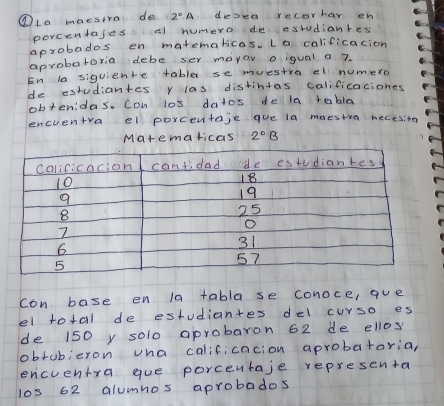 ① La maestra de 2°A desea recortar en
porcentajes el numero de estudiantes
aprobados en matematicas. La calificacion
aprobatoria debe ser mayor o igual a 7.
En la siguiente tabla se muestra el numero
de estudiantes y las distintas calificaciones
obtenidas. Con los datos de la tabla
encuentra el porcentaje que la maestra necesita
Matematicas 2°B
calificacion cantidad de estudiantes
10 18
9 19
8 25
7 0
6 31
5 57
con base en la tabla se conoce, que
el total de estudiantes del curso es
de 150 y solo aprobaron 62 de ellos
obtubieron una calificacion aprobatoria,
encuentra que porcentaje representa
los 62 alumnos aprobados